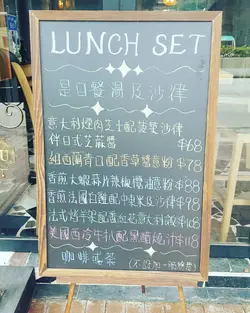 LUNCH SET
是日餐湯及沙律
意大利煙肉芝士配菠菜沙律
伴日式芝麻醬 $68
紐西蘭青口配香草醬意粉 $78
香煎大蝦蒜片辣椒欖油意粉 $98
香煎法國白雞配中東米及沙律 $98
法式烤羊架配 意大利飯 $118
美國西冷牛扒配黑醋燒汁 $118
咖啡或茶